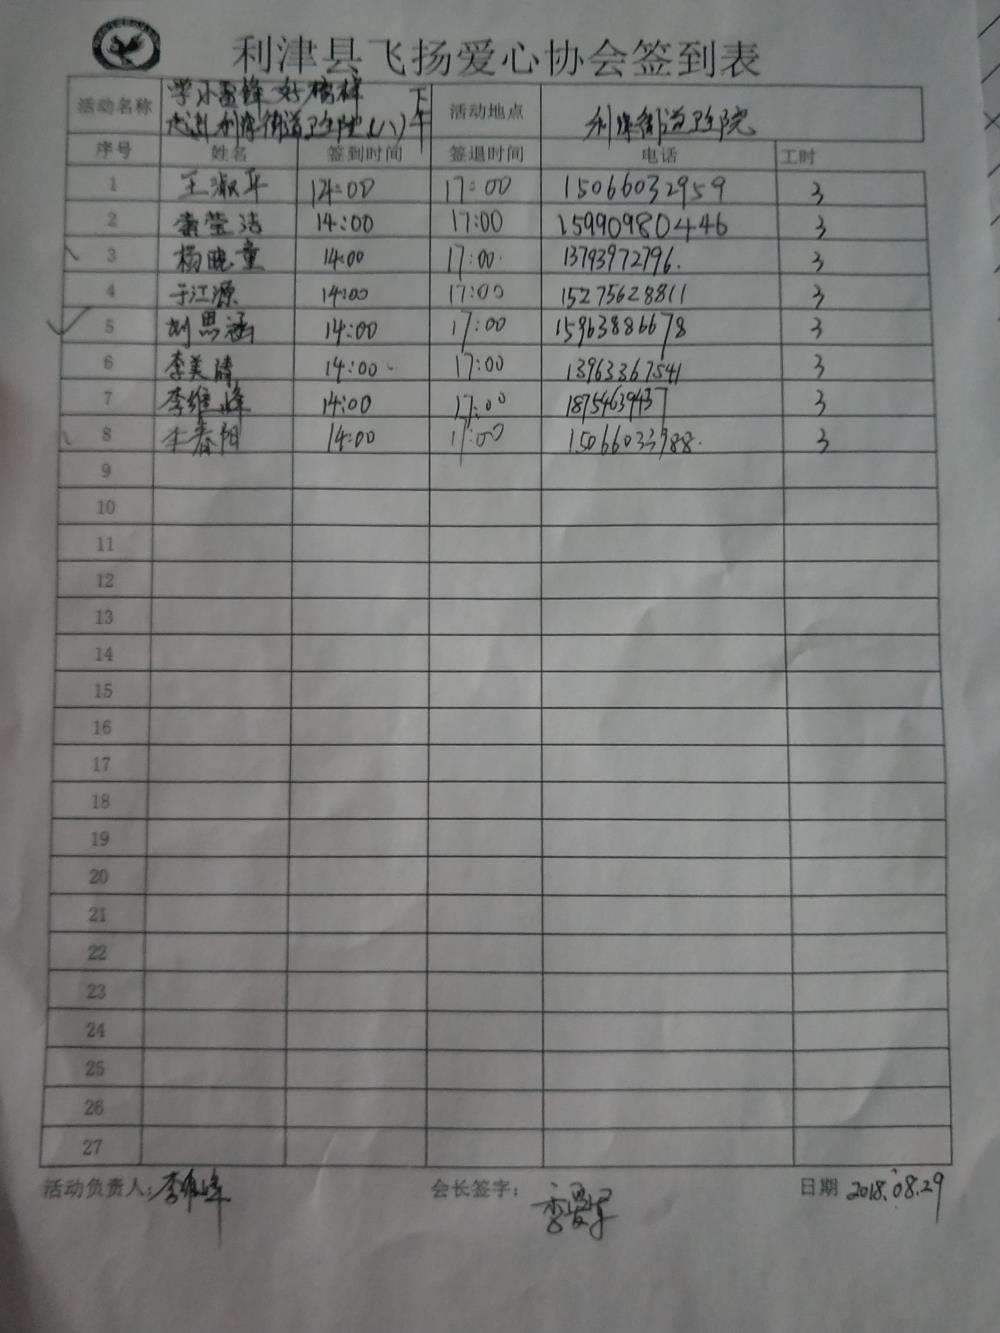 利津县飞扬爱心协会签到表
活动名称 学习雷锋好榜样 走进利津街道卫生院(八)下午 活动地点 利津街道卫生院
序号 姓名 签到时间 签退时间 电话 工时
1 王淑平 14:00 17:00 15066032959 3
2 莹洁 14:00 17:00 15990980446 3
3 杨晓童 14:00 17:00 13793972796. 3
4 于江源 14:00 17:00 15275628811 3
5 刘思涵 14:00 17:00 15963886678 3
6 李美 14:00 17:00 13963367541 3
7 李维峰 14:00 17:00 18754639437 3
8 春阳 14:00 17:00 15066033988. 3
9
10
11
12
13
14
15
16
17
18
19
20
21
22
23
24
25
26
27
活动负责人:李维峰 会长签字: 日期 2018.08.29